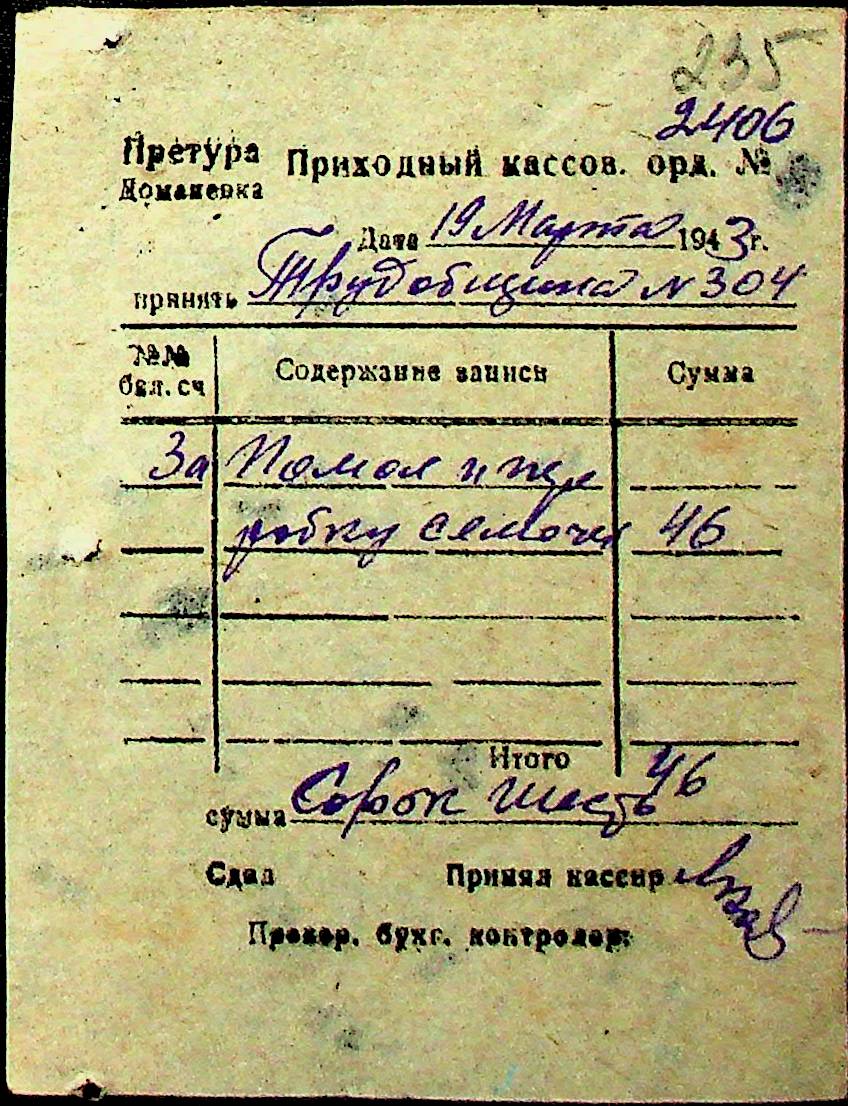 235
2406
Претура Приходный кассов. орд. №
Доманевка
Дата 19 Марта 1943 г.
принять Трудобщина N 304
№№ бал. сч Содержание записи Сумма
За Помол и пер
робку семочек 46
Итого 46
сумма Сорок шесть
Сдал Принял кассир
Провер. бухг. контролер: